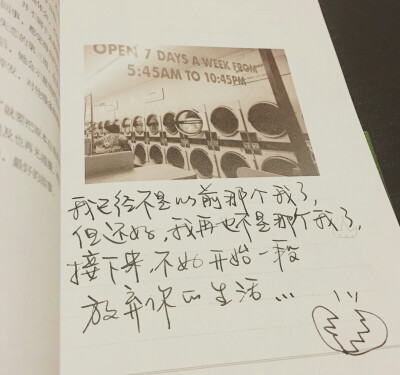 OPEN 7 DAYS A WEEK FROM
5:45AM TO 10:45PM
我已经不是以前那个我了,
但还好,我再也不是那个我了,
接下来,不如开始一段
放弃你的生活...